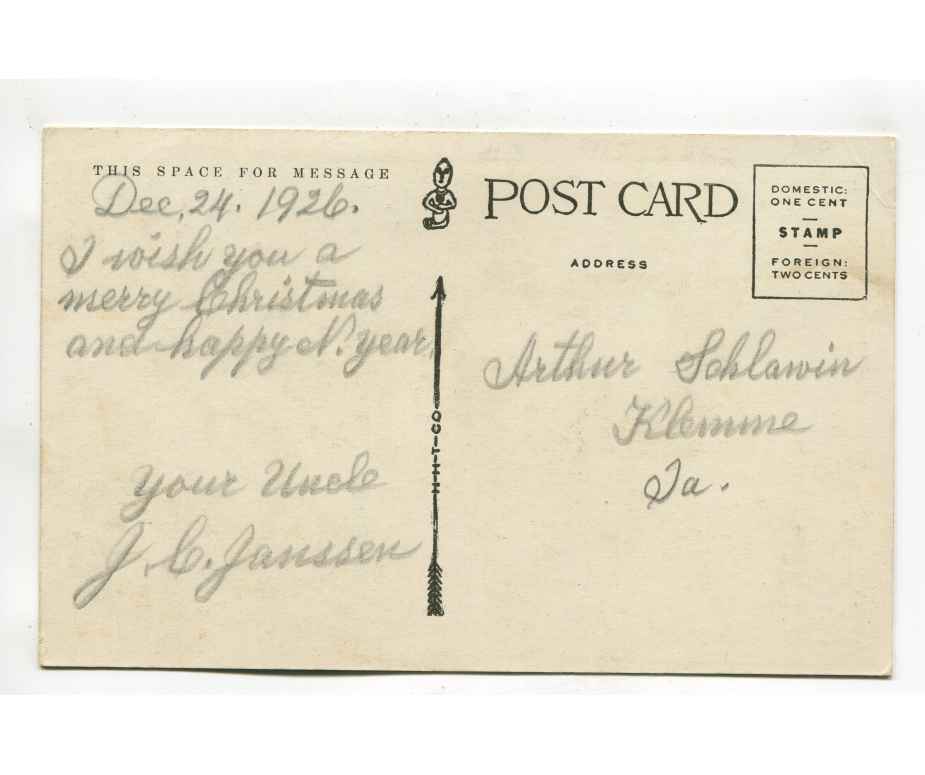 THIS SPACE FOR MESSAGE
Dec. 24. 1926.
I wish you a
merry Christmas
and happy N. year.
your Uncle
J. C. Janssen
H-H-T-CO
POST CARD
ADDRESS
DOMESTIC:
ONE CENT
STAMP
FOREIGN:
TWO CENTS
Arthur Schlawin
Klemme
Ia.